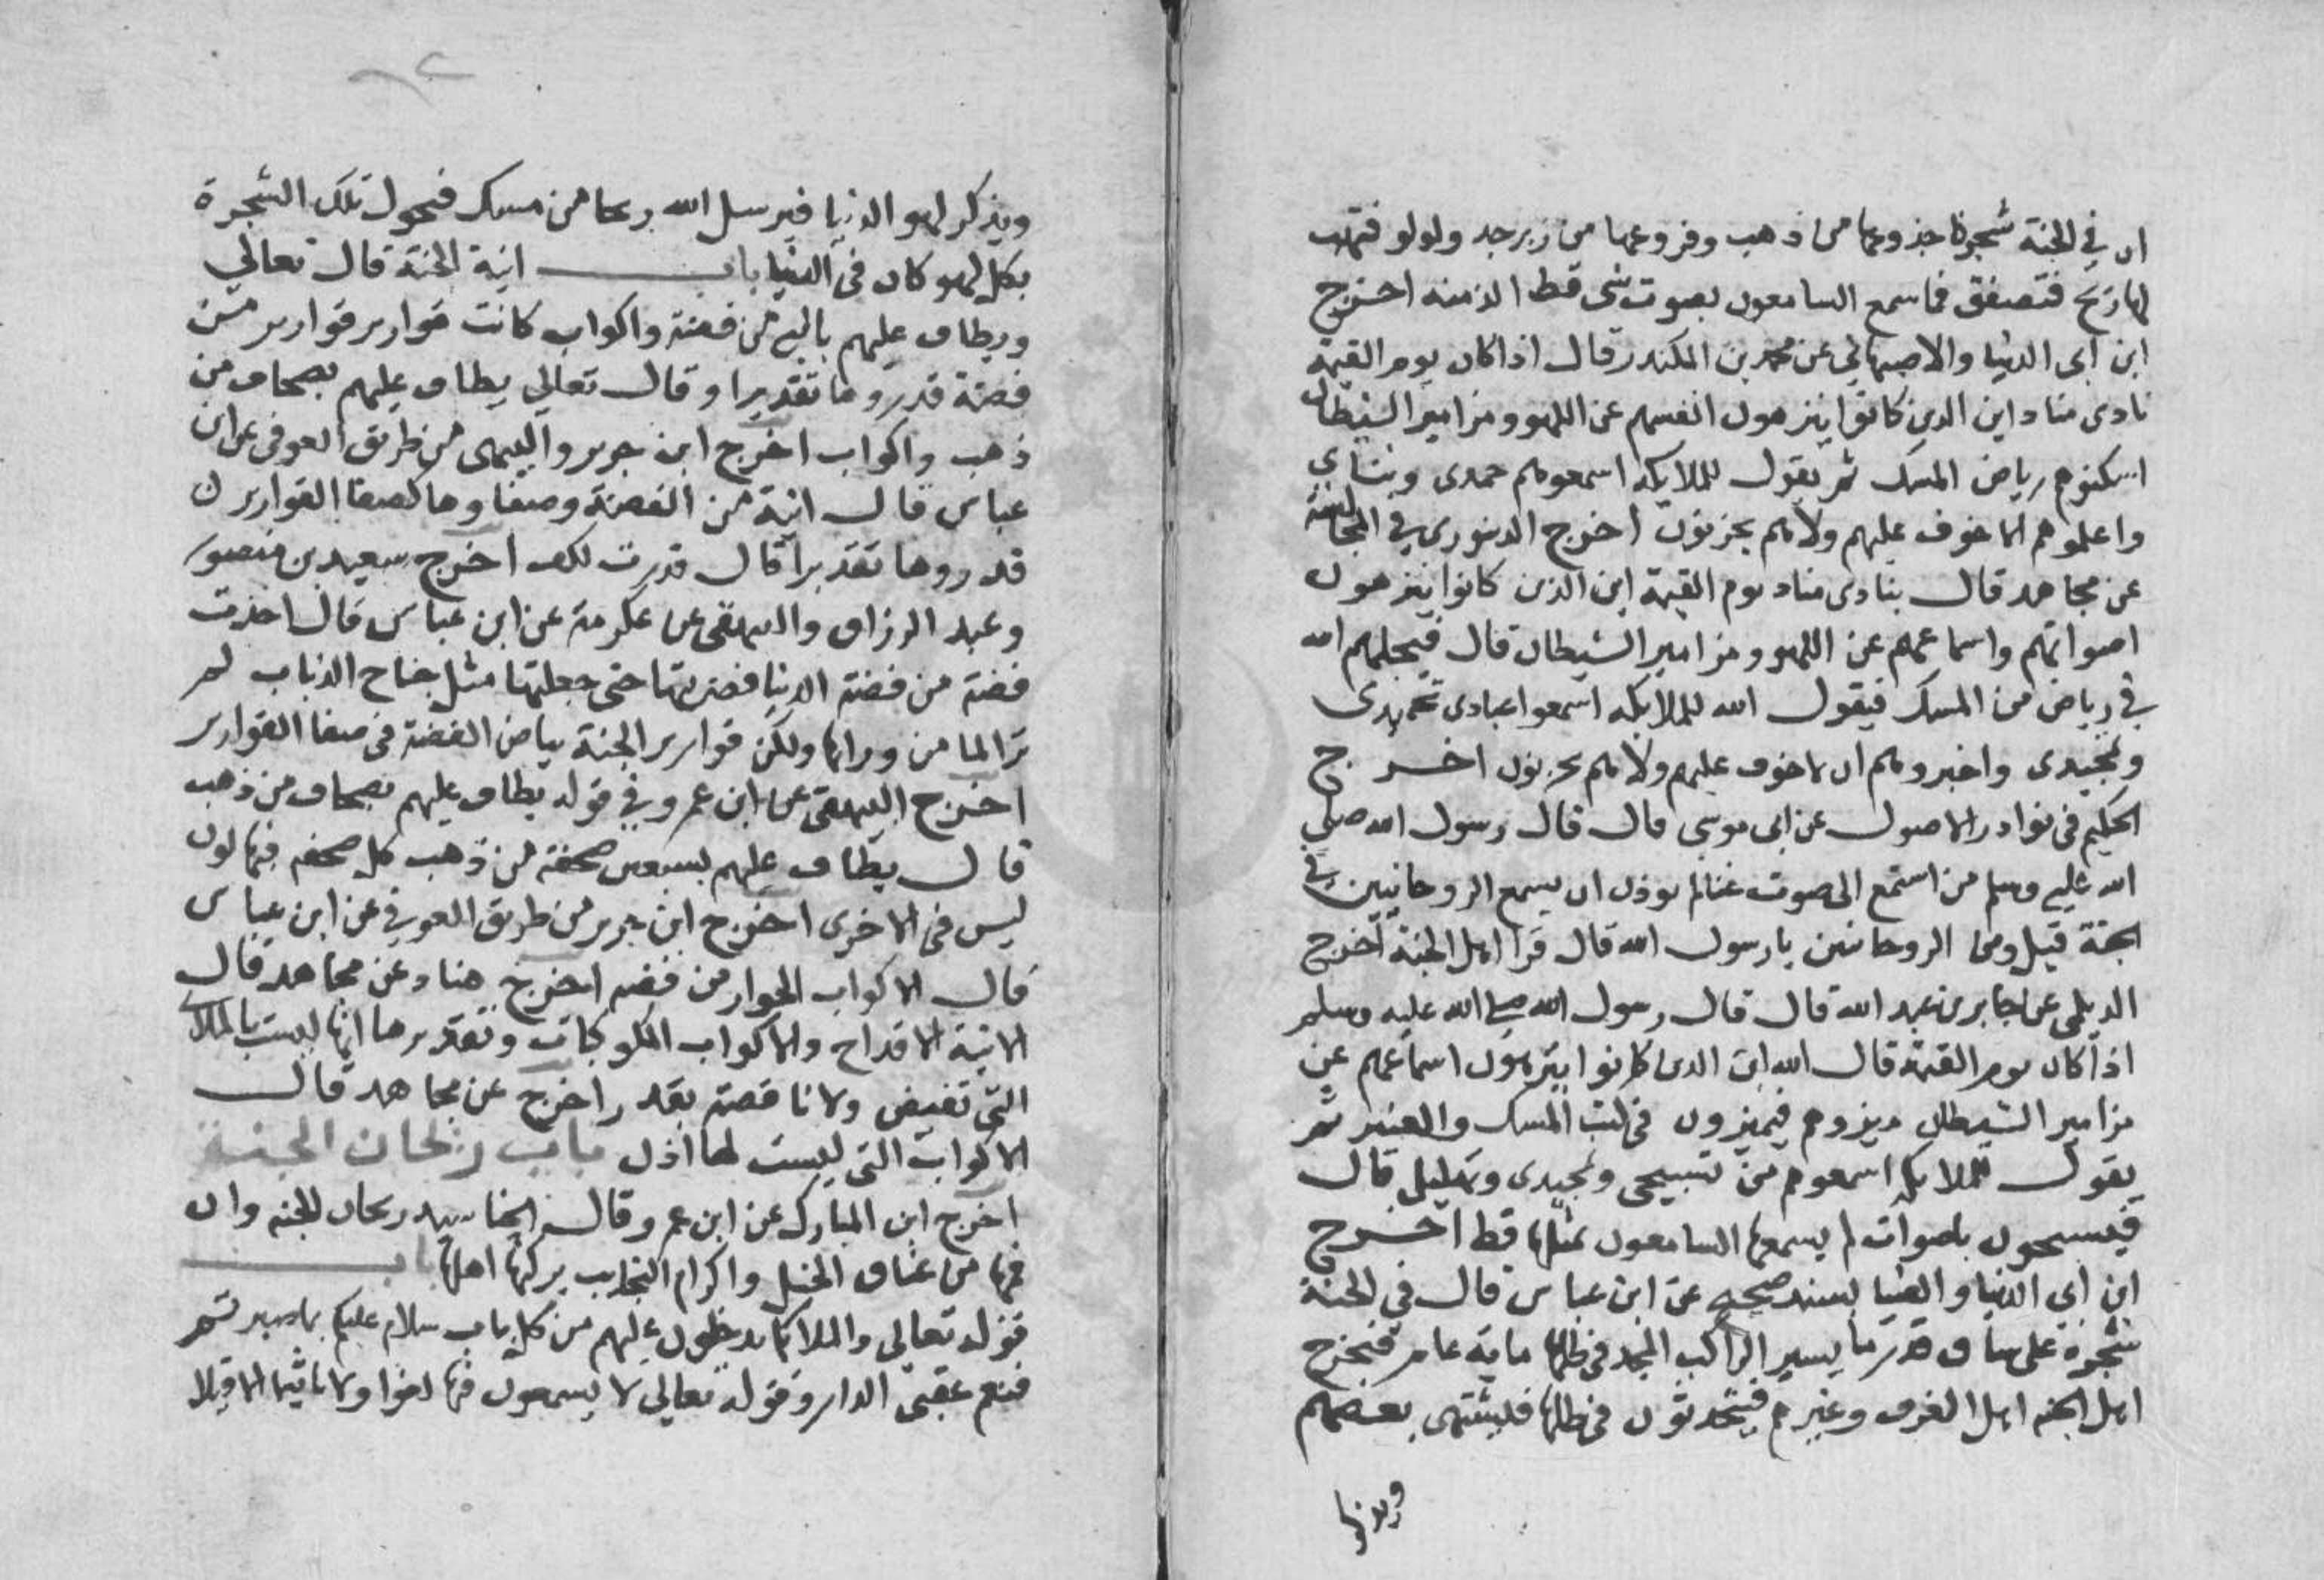 ان في الجنة شجرة جذوعها من ذهب وفروعها من زبرجد ولولو فتهب
لها ريح فتصفق فما سمع السامعون بصوت شي قط الذ منه اخرج
ابن ابي الدنيا والاصبهاني عن محمد بن المكندر قال اذا كان يوم القيمة
نادى مناد اين الدين كانوا ينزهون انفسهم عن اللهو ومزامير الشيطان
اسكنوهم رياض المسك ثم يقول للملايكه اسمعوهم حمدى وثناي
واعلموهم الا خوف عليهم ولا هم يحزنون اخرج الدينوري في المجالسة
عن مجاهد قال ينادى مناد يوم القيمة اين الذين كانوا ينزهون
اصواتهم واسماعهم عن اللهو ومزامير الشيطان قال فيجعلهم الله
في رياض من المسك فيقول الله للملايكه اسمعوا عبادى تحميدى
وتمجيدى واخبروهم ان لا خوف عليهم ولا هم يحزنون اخرج
الحكيم في نوادر الاصول عن ابى موسى قال قال رسول الله صلي
الله عليه وسلم من استمع الى صوت غنا لم يوذن ان يسمع الروحانيين في
الجنة قيل ومن الروحانيين يا رسول الله قال قرا اهل الجنة اخرج
الديلمى عن جابر بن عبد الله قال قال رسول الله صلي الله عليه وسلم
اذا كان يوم القيمة قال الله اين الدين كانوا ينزهون اسماعهم عن
مزامير الشيطان ميزوهم فيميزون في كثب المسك والعنبر ثم
يقول للملايكه اسمعوهم من تسبيحى وتمجيدى وتهليلى قال
فيسبحون باصوات لم يسمع السامعون بمثلها قط اخرج
ابن ابي الدنيا والضيا بسند صحيح عن ابن عباس قال في الجنة
شجرة على ساق قدر ما يسير الراكب المجد في ظلها ماية عام فيخرج
اهل الجنه اهل الغرف وغيرهم فيتحدثون في ظلها فيشتهى بعضهم
ويذكر لهو الدنيا فيرسل الله ريحا من مسك فتحول تلك الشجرة
بكل لهو كان في الدنيا باب انية الجنة قال تعالي
ويطاف عليهم بانية من فضة واكواب كانت قوارير قوارير من
فضة قدروها تقديرا وقال تعالي يطاف عليهم بصحاف من
ذهب واكواب اخرج ابن جرير والبيهقى من طريق العوفى عن ابن
عباس قال انية من الفضة وصفاوها كصفا القوارير
قدروها تقديرا قال قدرت لكف اخرج سعيد بن منصور
وعبد الرزاق والبيهقى عن عكرمة عن ابن عباس قال اخذت
فضة من فضة الدنيا فضربتها حتى جعلتها مثل جناح الذباب لم
تر الما من ورائها ولكن قوارير الجنة بياض الفضة في صفا القوارير
اخرج البيهقى عن ابن عمرو في قوله يطاف عليهم بصحاف من ذهب
قال يطاف عليهم بسبعين صحفة من ذهب كل صحفه فيها لون
ليس في الاخرى اخرج ابن جرير من طريق العوفي عن ابن عباس
قال الاكواب الجرار من فضه اخرج هناد عن مجاهد قال
الانية الاقداح والاكواب المكوكات وتقديرها انها ليست بالملاى
التي تفيض ولا ناقصة بقدر اخرج عن مجاهد قال
الاكواب التي ليست لها اذن باب ريحان الجنة
اخرج ابن المبارك عن ابن عمرو قال الحنا سيد ريحان الجنه وان
فيها من عتاق الخيل واكرام النجايب يركبها اهلها باب
قوله تعالى والملايكة يدخلون عليهم من كل باب سلام عليكم بما صبرتم
فنعم عقبى الدار وقوله تعالي لا يسمعون فيها لغوا ولا تاثيما الا قيلا